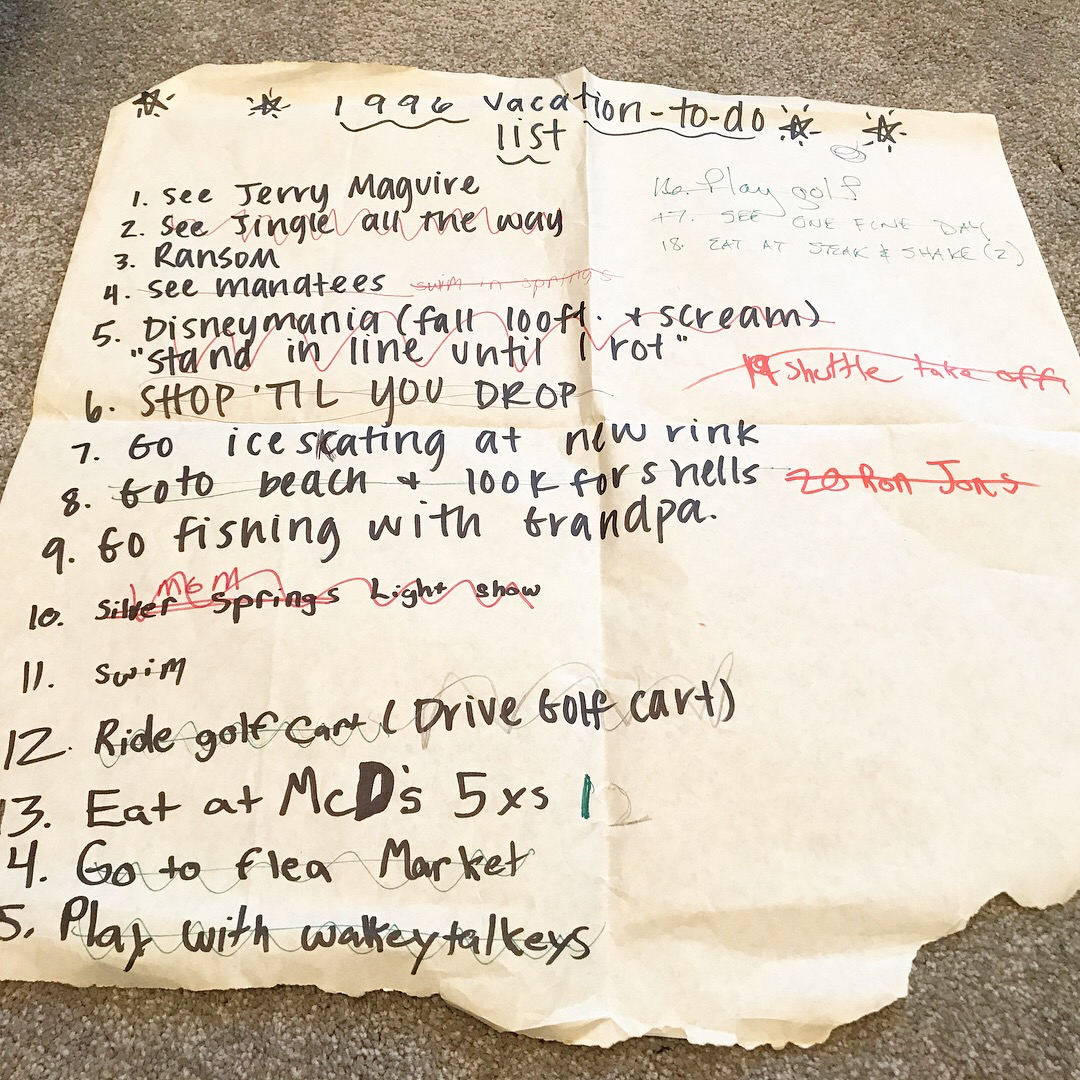 1996 vacation-to-do
list
1. see Jerry Maguire
2. see Jingle all the way
3. Ransom
4. see manatees swim in springs
5. Disneymania (fall 100ft. + scream)
"stand in line until I rot"
6. SHOP 'TIL YOU DROP
7. Go iceskating at new rink
8. Goto beach + look for shells
9. Go fishing with Grandpa.
MGM
10. Silver Springs Light show
11. swim
12. Ride golf cart (Drive Golf cart)
13. Eat at McD's 5xs 1 2
4. Go to flea Market
5. Play with walkeytalkeys
16. Play golf
17. SEE ONE FINE DAY
18. EAT AT STEAK & SHAKE (2)
19 shuttle take off
20 Ron Jons